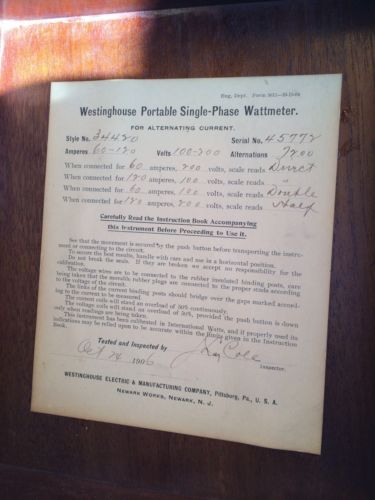 Eng. Dept. Form
Westinghouse Portable Single-Phase Wattmeter.
FOR ALTERNATING CURRENT.
Style No. 34420 Serial No. 45772
Amperes 60-120 Volts 100-200 Alternations 7200
When connected for 60 amperes, 200 volts, scale reads Direct
When connected for 120 amperes, 100 volts, scale reads "
When connected for 60 amperes, 100 volts, scale reads Double
When connected for 120 amperes, 200 volts, scale reads Half
Carefully Read the Instruction Book Accompanying
this Instrument Before Proceeding to Use it.
See that the movement is secured by the push button before transporting the instru-
ment or connecting to the circuit.
To secure the best results, handle with care and use in a horizontal position.
Do not break the seals. If they are broken we accept no responsibility for the
calibration.
The voltage wires are to be connected to the rubber insulated binding posts, care
being taken that the movable rubber plugs are connected to the proper studs according
to the voltage of the circuit.
The links of the current binding posts should bridge over the gaps marked accord-
ing to the current to be measured.
The current coils will stand an overload of 50% continuously.
The voltage coils will stand an overload of 50%, provided the push button is down
only when readings are being taken.
This instrument has been calibrated in International Watts, and if properly used its
indications may be relied upon to be accurate within the limits given in the Instruction
Book.
Tested and Inspected by
Oct 24 1906 Cole
Inspector.
WESTINGHOUSE ELECTRIC & MANUFACTURING COMPANY, Pittsburg, Pa., U. S. A.
NEWARK WORKS, NEWARK, N. J.